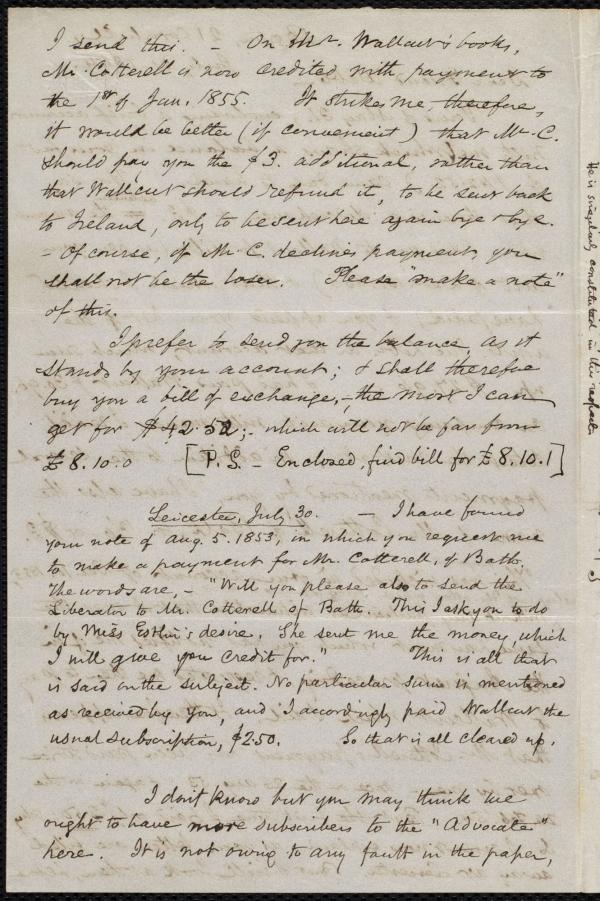 I send this. – On Mr. Wallcut's books,
Mr. Cotterell is now credited with payment to
the 1st of Jan. 1855. It strikes me, therefore,
it would be better (if convenient) that Mr. C.
should pay you the $3. additional, rather than
that Wallcut should refund it, to be sent back
to Ireland, only to be sent here again bye & bye.
– Of course, if Mr. C. declines payment, you
shall not be the loser. Please "make a note"
of this.
I prefer to send you the balance, as it
stands by your account; & shall therefore
buy you a bill of exchange, – the most I can
get for $42.52; – which will not be far from
£8.10.0 [P.S. – Enclosed, find bill for £8.10.1]
Leicester, July 30. – I have found
your note of Aug. 5. 1853, in which you request me
to make a payment for Mr. Cotterell, of Bath.
The words are, – "Will you please also to send the
Liberator to Mr. Cotterell of Bath. This I ask you to do
by Miss Estlin's desire. She sent me the money, which
I will give you credit for." This is all that
is said on the subject. No particular sum is mentioned
as received by you, and I accordingly paid Wallcut the
usual subscription, $2.50. So that is all cleared up.
I don't know but you may think we
ought to have more subscribers to the "Advocate"
here. It is not owing to any fault in the paper,
He is singularly constituted in this respect.